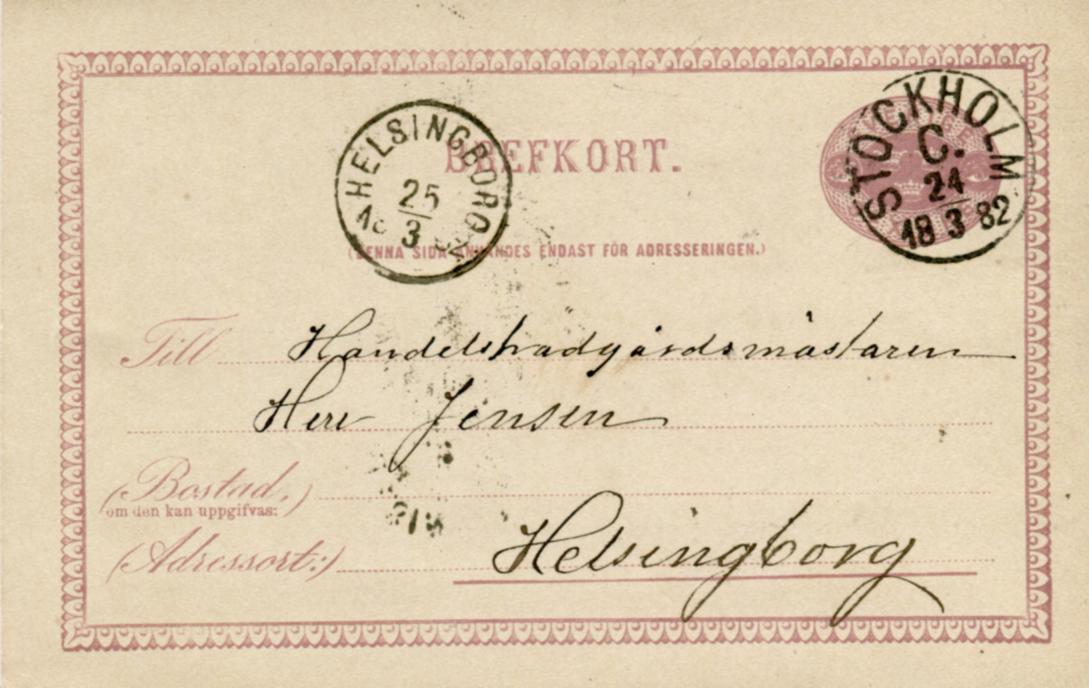 BREFKORT.
HELSINGBORG
25
18 3
STOCKHOLM
C.
24
18 3 82
(DENNA SIDA ANVÄNDES ENDAST FÖR ADRESSERINGEN.)
Till Handelsträdgårdsmästaren
Herr Jensen
(Bostad,)
om den kan uppgifvas:
(Adressort:) Helsingborg